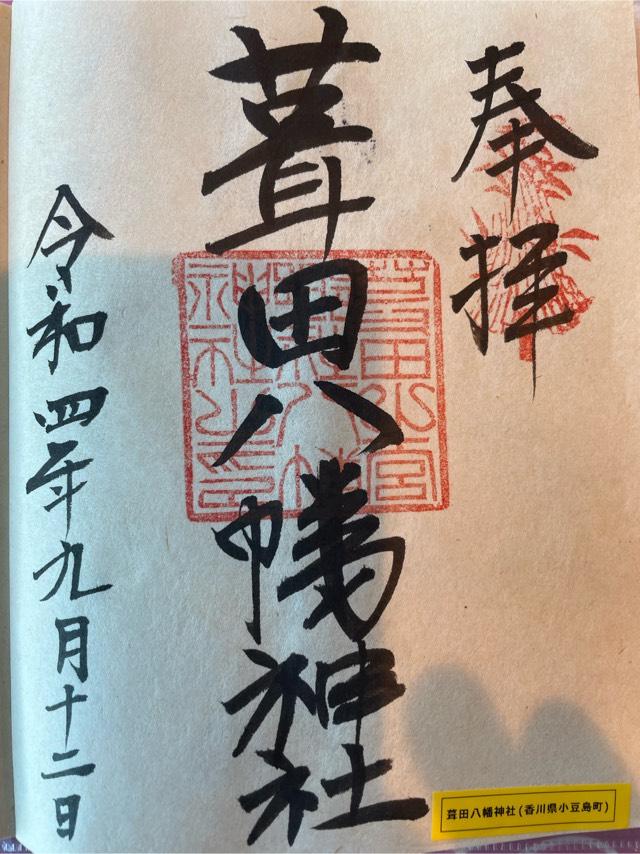 奉拝
葺田八幡神社
令和四年九月十二日
葺田八幡神社(香川県小豆島町)